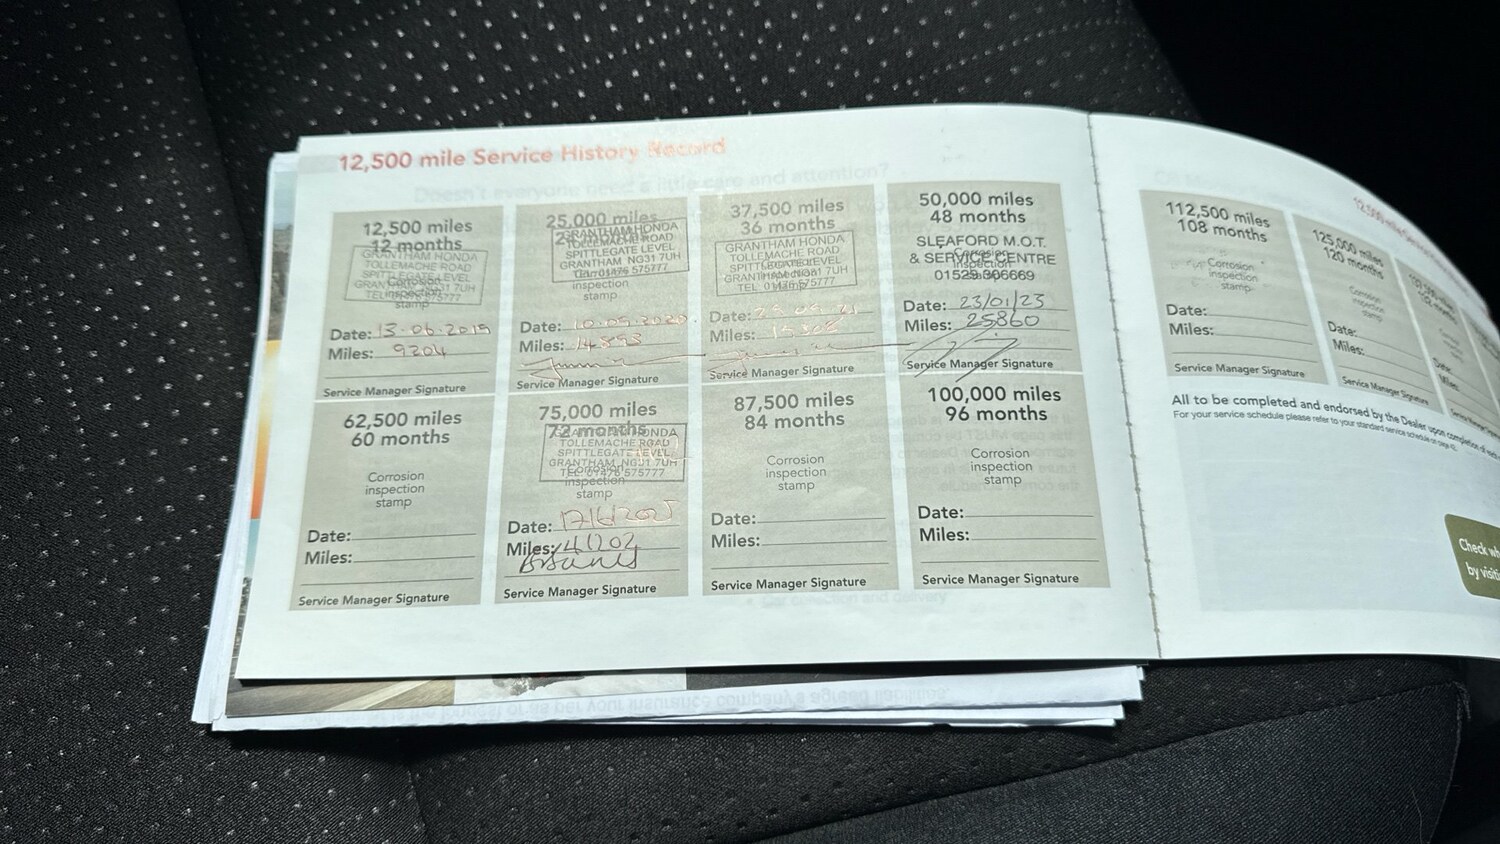 12,500 mile Service History Record
Doesn't everyone need a little care and attention?
12,500 miles
12 months
GRANTHAM HONDA
TOLLEMACHE ROAD
SPITTLEGATE LEVEL
GRANTHAM NG31 7UH
TEL 01476 575777
Corrosion
inspection
stamp
Date: 13-06-2019
Miles: 9204
Service Manager Signature
25,000 miles
24 months
GRANTHAM HONDA
TOLLEMACHE ROAD
SPITTLEGATE LEVEL
GRANTHAM NG31 7UH
TEL 01476 575777
Corrosion
inspection
stamp
Date: 10.09.2020
Miles: 14893
Service Manager Signature
37,500 miles
36 months
GRANTHAM HONDA
TOLLEMACHE ROAD
SPITTLEGATE LEVEL
GRANTHAM NG31 7UH
TEL 01476 575777
Date:
Miles:
Service Manager Signature
50,000 miles
48 months
SLEAFORD M.O.T.
& SERVICE CENTRE
01529 306669
Corrosion
inspection
stamp
Date: 23/01/23
Miles: 25860
Service Manager Signature
62,500 miles
60 months
Corrosion
inspection
stamp
Date:
Miles:
Service Manager Signature
75,000 miles
72 months
GRANTHAM HONDA
TOLLEMACHE ROAD
SPITTLEGATE LEVEL
GRANTHAM NG31 7UH
TEL 01476 575777
Corrosion
inspection
stamp
Date: 17/6/2025
Miles: 41202
Service Manager Signature
87,500 miles
84 months
Corrosion
inspection
stamp
Date:
Miles:
Service Manager Signature
100,000 miles
96 months
Corrosion
inspection
stamp
Date:
Miles:
Service Manager Signature
112,500 miles
108 months
Corrosion
inspection
stamp
Date:
Miles:
Service Manager Signature
125,000 miles
120 months
Corrosion
inspection
stamp
Date:
Miles:
Service Manager Signature
Date:
Miles:
All to be completed and endorsed by the Dealer upon completion of
For your service schedule please refer to your standard service schedule on page
Check
by
as per your insurance company's agreed liabilities